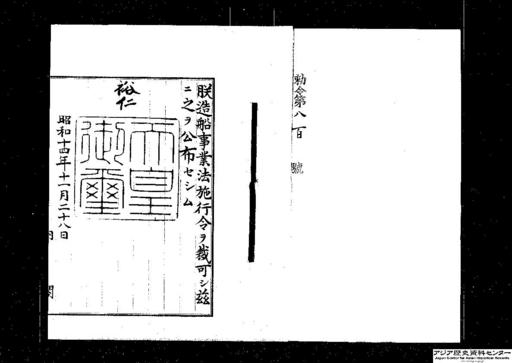 勅令第八百號
朕造船事業法施行令ヲ裁可シ茲
ニ之ヲ公布セシム
裕仁
天皇御璽
昭和十四年十一月二十八日
内閣
アジア歴史資料センター
Japan Center for Asian Historical Records